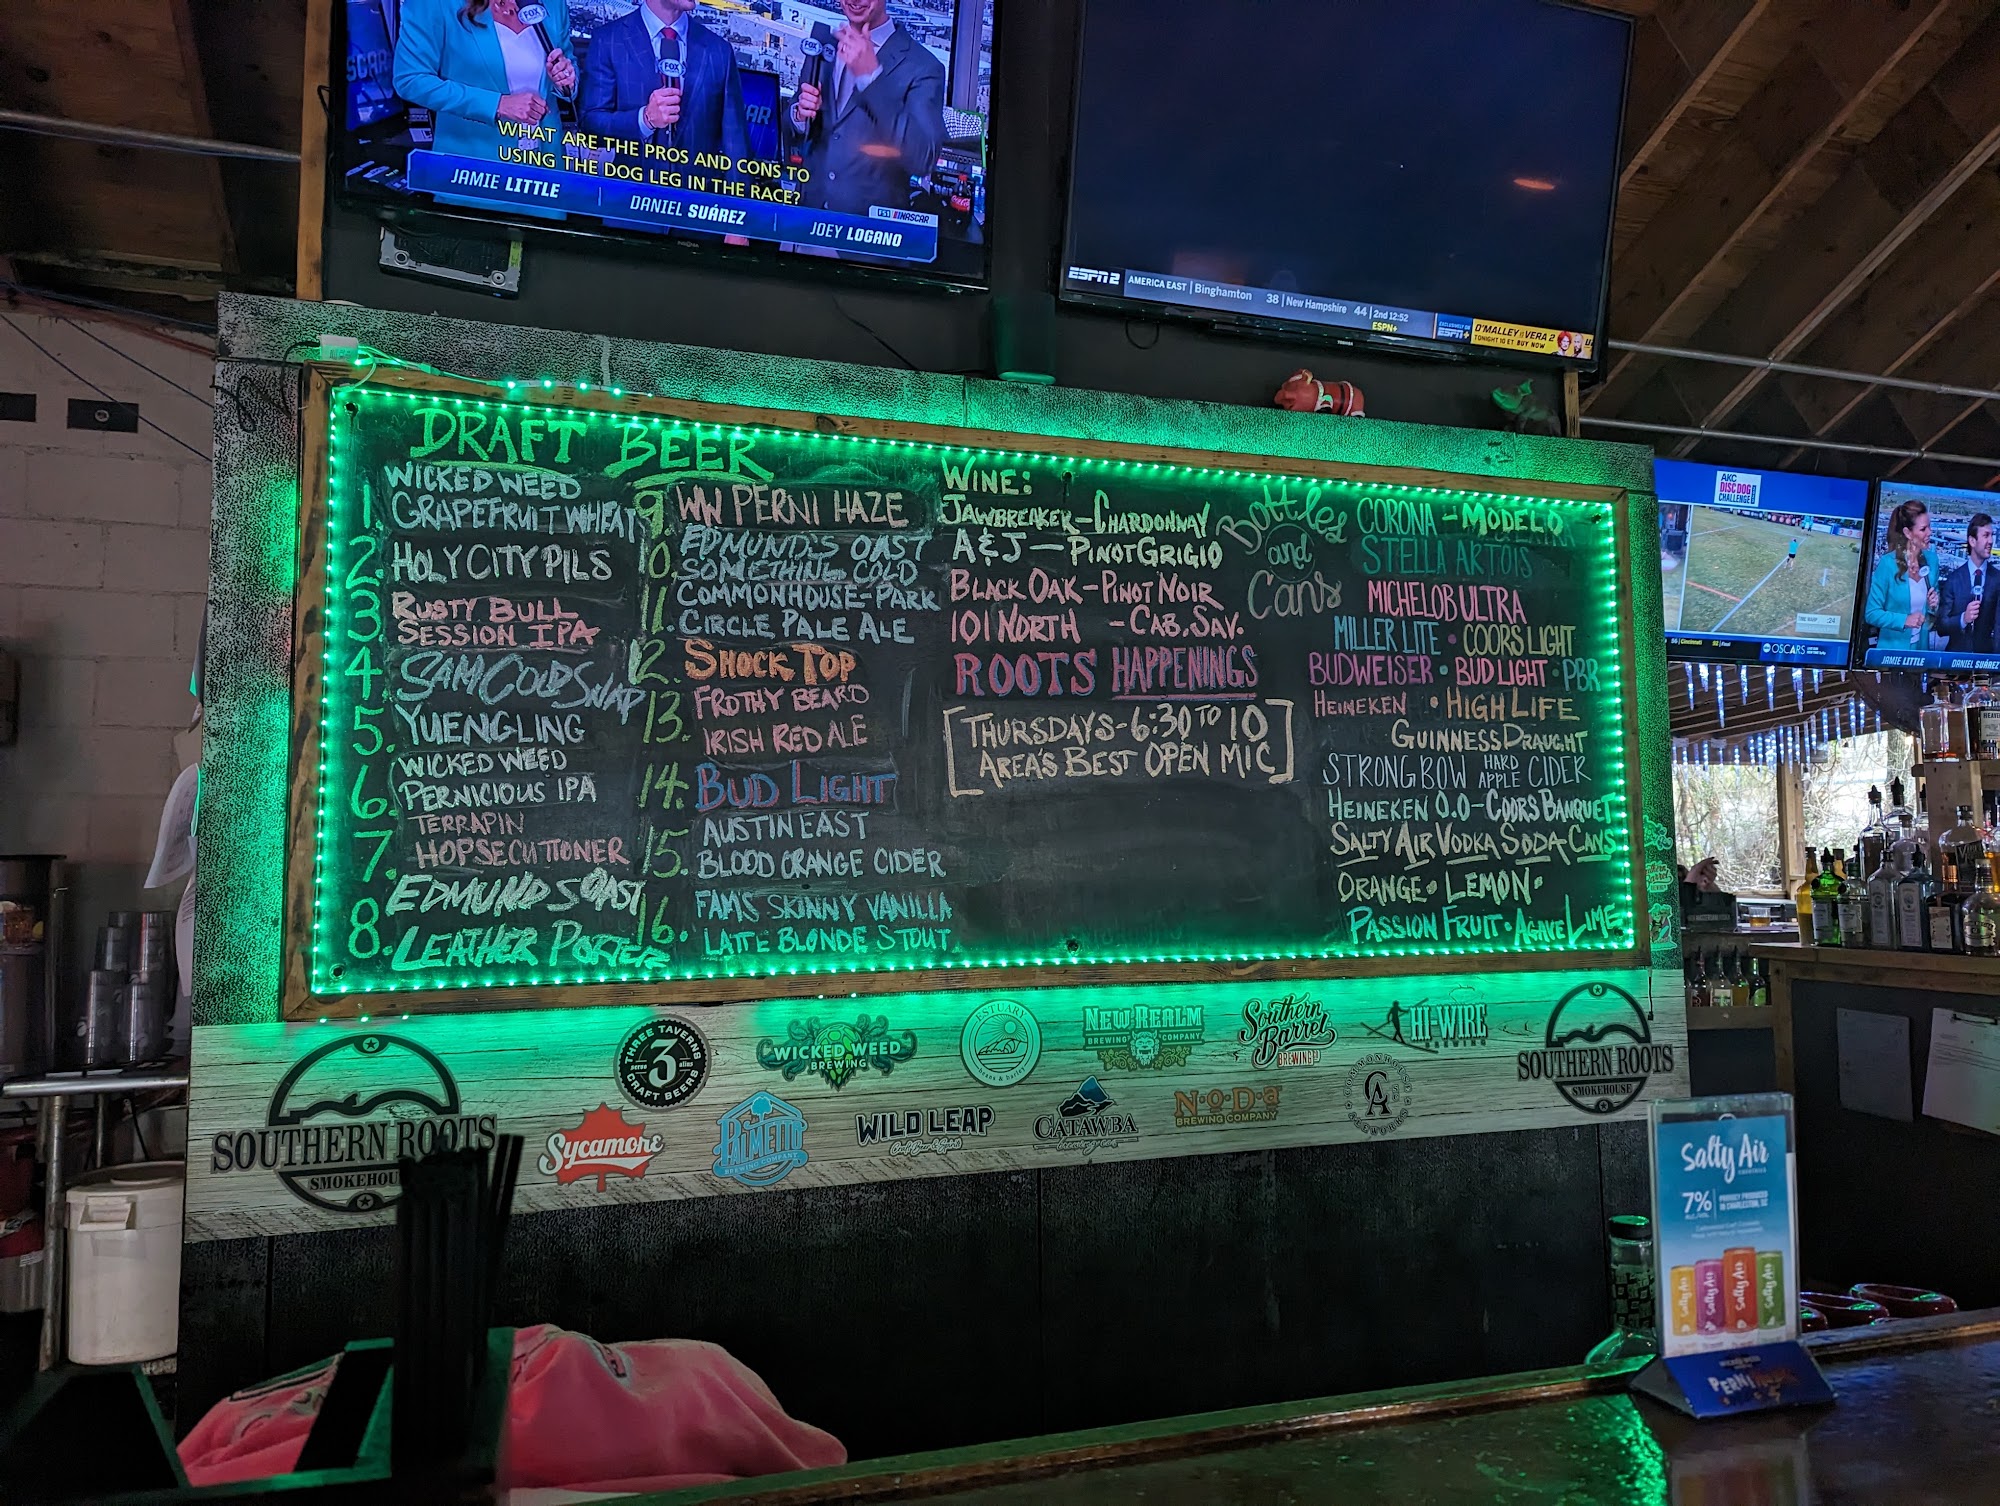 FOX
FOX
FOX
2
SCAR
AR
WHAT ARE THE PROS AND CONS TO
USING THE DOG LEG IN THE RACE?
JAMIE LITTLE
DANIEL SUÁREZ
JOEY LOGANO
FS1 NASCAR
ESPN2
AMERICA EAST | Binghamton 38 | New Hampshire 44 | 2nd 12:52
ESPN+
EXCLUSIVELY ON
ESPN+
O'MALLEY VS VERA 2
TONIGHT 10 ET BUY NOW
TOSHIBA
AKC
DISC DOG
CHALLENGE
OSCARS
JAMIE LITTLE
DANIEL SUÁRE
DRAFT BEER
1. WICKED WEED
GRAPEFRUIT WHEAT
2. HOLY CITY PILS
3. RUSTY BULL
SESSION IPA
4. SAM COLD SNAP
5. YUENGLING
6. WICKED WEED
PERNICIOUS IPA
7. TERRAPIN
HOPSECUTIONER
8. EDMUNDS OAST
LEATHER PORTER
9. WW PERNI HAZE
10. EDMUND'S OAST
SOMETHING COLD
11. COMMONHOUSE-PARK
CIRCLE PALE ALE
12. SHOCK TOP
13. FROTHY BEARD
IRISH RED ALE
14. BUD LIGHT
15. AUSTIN EAST
BLOOD ORANGE CIDER
16. FAM'S SKINNY VANILLA
LATTE BLONDE STOUT
WINE:
JAWBREAKER-CHARDONNAY
A & J - PINOT GRIGIO
BLACK OAK-PINOT NOIR
101 NORTH - CAB. SAV.
ROOTS HAPPENINGS
[THURSDAYS-6:30 TO 10
AREA'S BEST OPEN MIC]
Bottles
and
Cans
CORONA - MODELO
STELLA ARTOIS
MICHELOB ULTRA
MILLER LITE • COORS LIGHT
BUDWEISER • BUD LIGHT • PBR
HEINEKEN • HIGH LIFE
GUINNESS DRAUGHT
STRONGBOW HARD APPLE CIDER
HEINEKEN 0.0-COORS BANQUET
SALTY AIR VODKA SODA CANS
ORANGE • LEMON •
PASSION FRUIT • AGAVE LIME
SOUTHERN ROOTS
SMOKEHOUSE
THREE TAVERNS
3
CRAFT BEERS
WICKED WEED
BREWING
ESTUARY
beans & barley
NEW REALM
BREWING COMPANY
Southern
Barrel
BREWING CO
HI-WIRE
BREWING
SOUTHERN ROOTS
SMOKEHOUSE
Sycamore
PALMETTO
BREWING COMPANY
WILD LEAP
Craft Beer & Spirits
CATAWBA
brewing co.
N·O·D·A
BREWING COMPANY
COMMONHOUSE
CA
ALEWORKS
Salty Air
7%
ALC./VOL.
PROUDLY PRODUCED
IN CHARLESTON, SC
Salty Air
Salty Air
Salty Air
Salty Air
WICKED WEED
PERNI